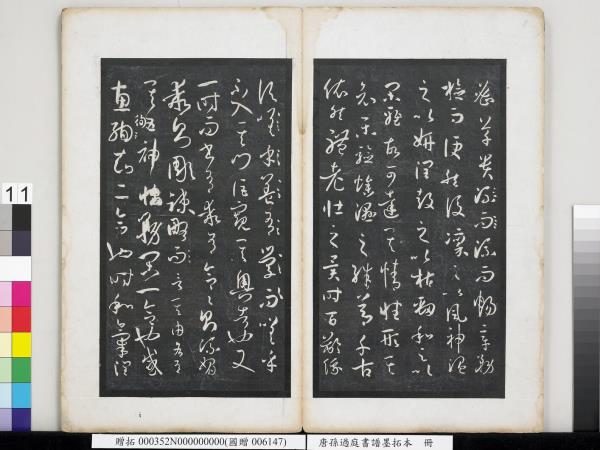 密草貴流而流而暢章務
檢而便然後凜之以風神溫
之以妍潤鼓之以枯勁和之以
閑雅故可達其情性形其
哀樂驗燥濕之殊節千古
依然體老壯之異時百齡俄
頃嗟乎
不入其門詎窺其奧者也又
一時而書有乖有合合則流媚
乖則雕疎略而言其由各有
其五神怡務閑一合也感
惠徇知二合也時和氣潤
11
贈拓 000352N000000000(國贈 006147)
唐孫過庭書譜墨拓本 冊